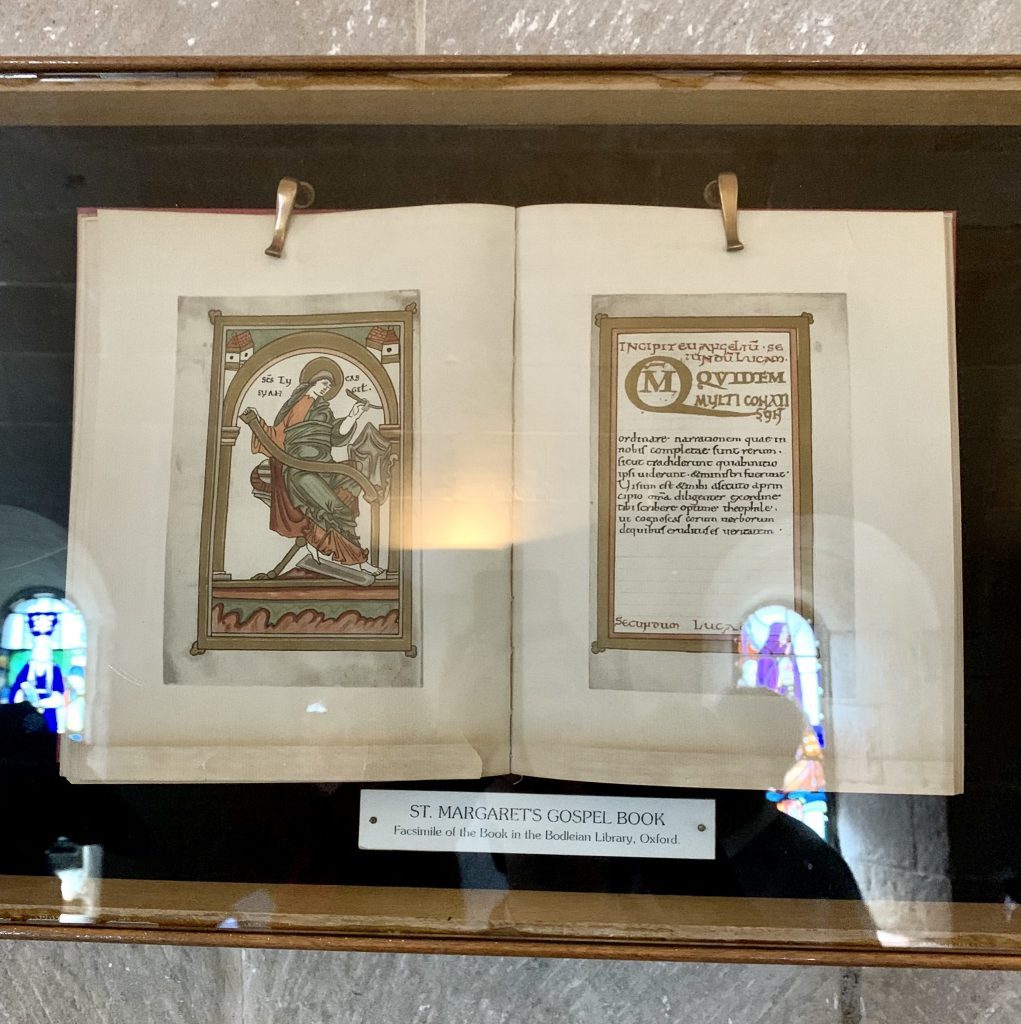 SC̄S LU CAS
EVAN GEL.
INCIPIT EVANGELIŪ · SE
CUNDŪ LUCAM.
QM̄ QVIDEM
MVLTI CONATI
SUNT
ordinare narrationem quae in
nobis completae sunt rerum.
sicut tradiderunt qui ab initio
ipsi uiderunt. & ministri fuerunt
Uisum est & mihi assecuto a prin
cipio om̄a diligenter ex ordine
tibi scribere optime theophile.
ut cognoscas eorum uerborum
de quibus eruditus es ueritatem.
SECUNDUM LUCA
ST. MARGARET'S GOSPEL BOOK
Facsimile of the Book in the Bodleian Library, Oxford.